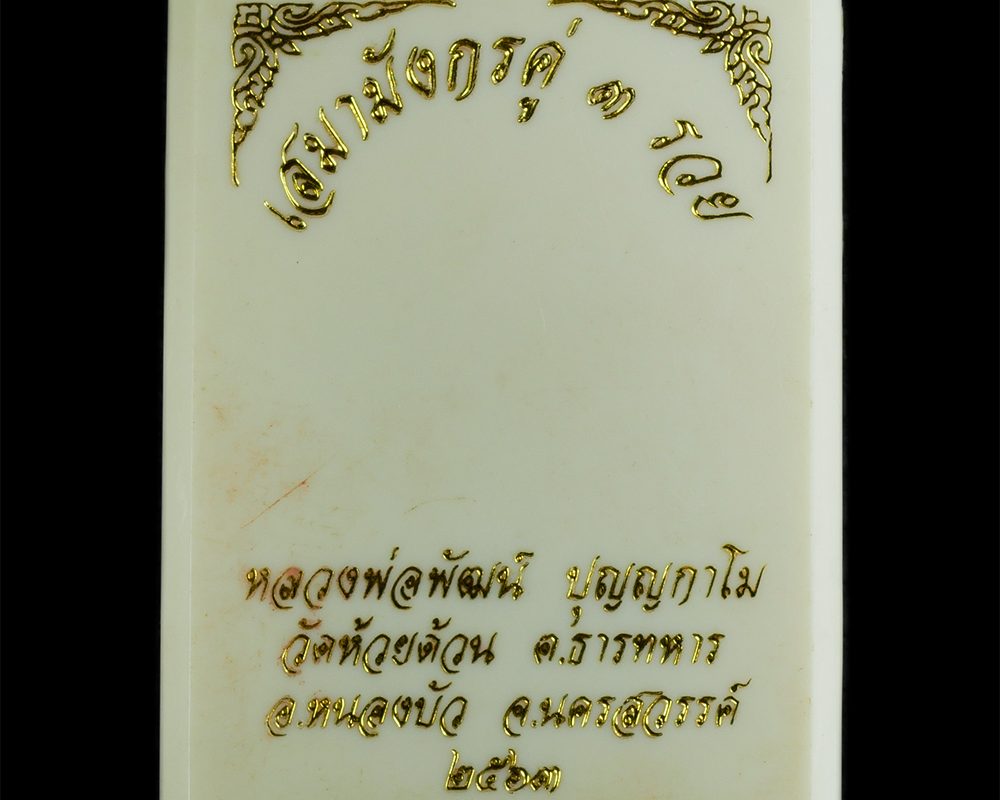 เสมามังกรคู่ ๓ รวย
หลวงพ่อพัฒน์ ปุญญกาโม
วัดห้วยด้วน ต.ธารทหาร
อ.หนองบัว จ.นครสวรรค์
๒๕๖๓